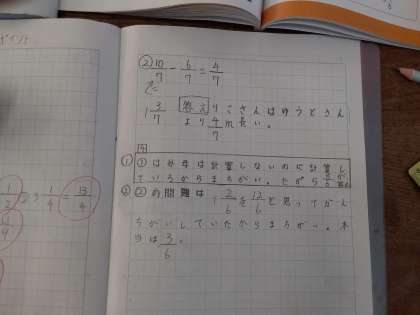 ポイント
② 10/7 - 6/7 = 4/7
1 3/7
答え りこさんはゆうとさん
より 4/7 m長い。
① ①は分母は計算しないのに計算し
ているからまちがい。だから
② ②の問題は 1 2/6 を 12/6 と思ってかん
ちがいしていたからまちがい。本
当は 3/6。
1/2
1/4 = 13/4